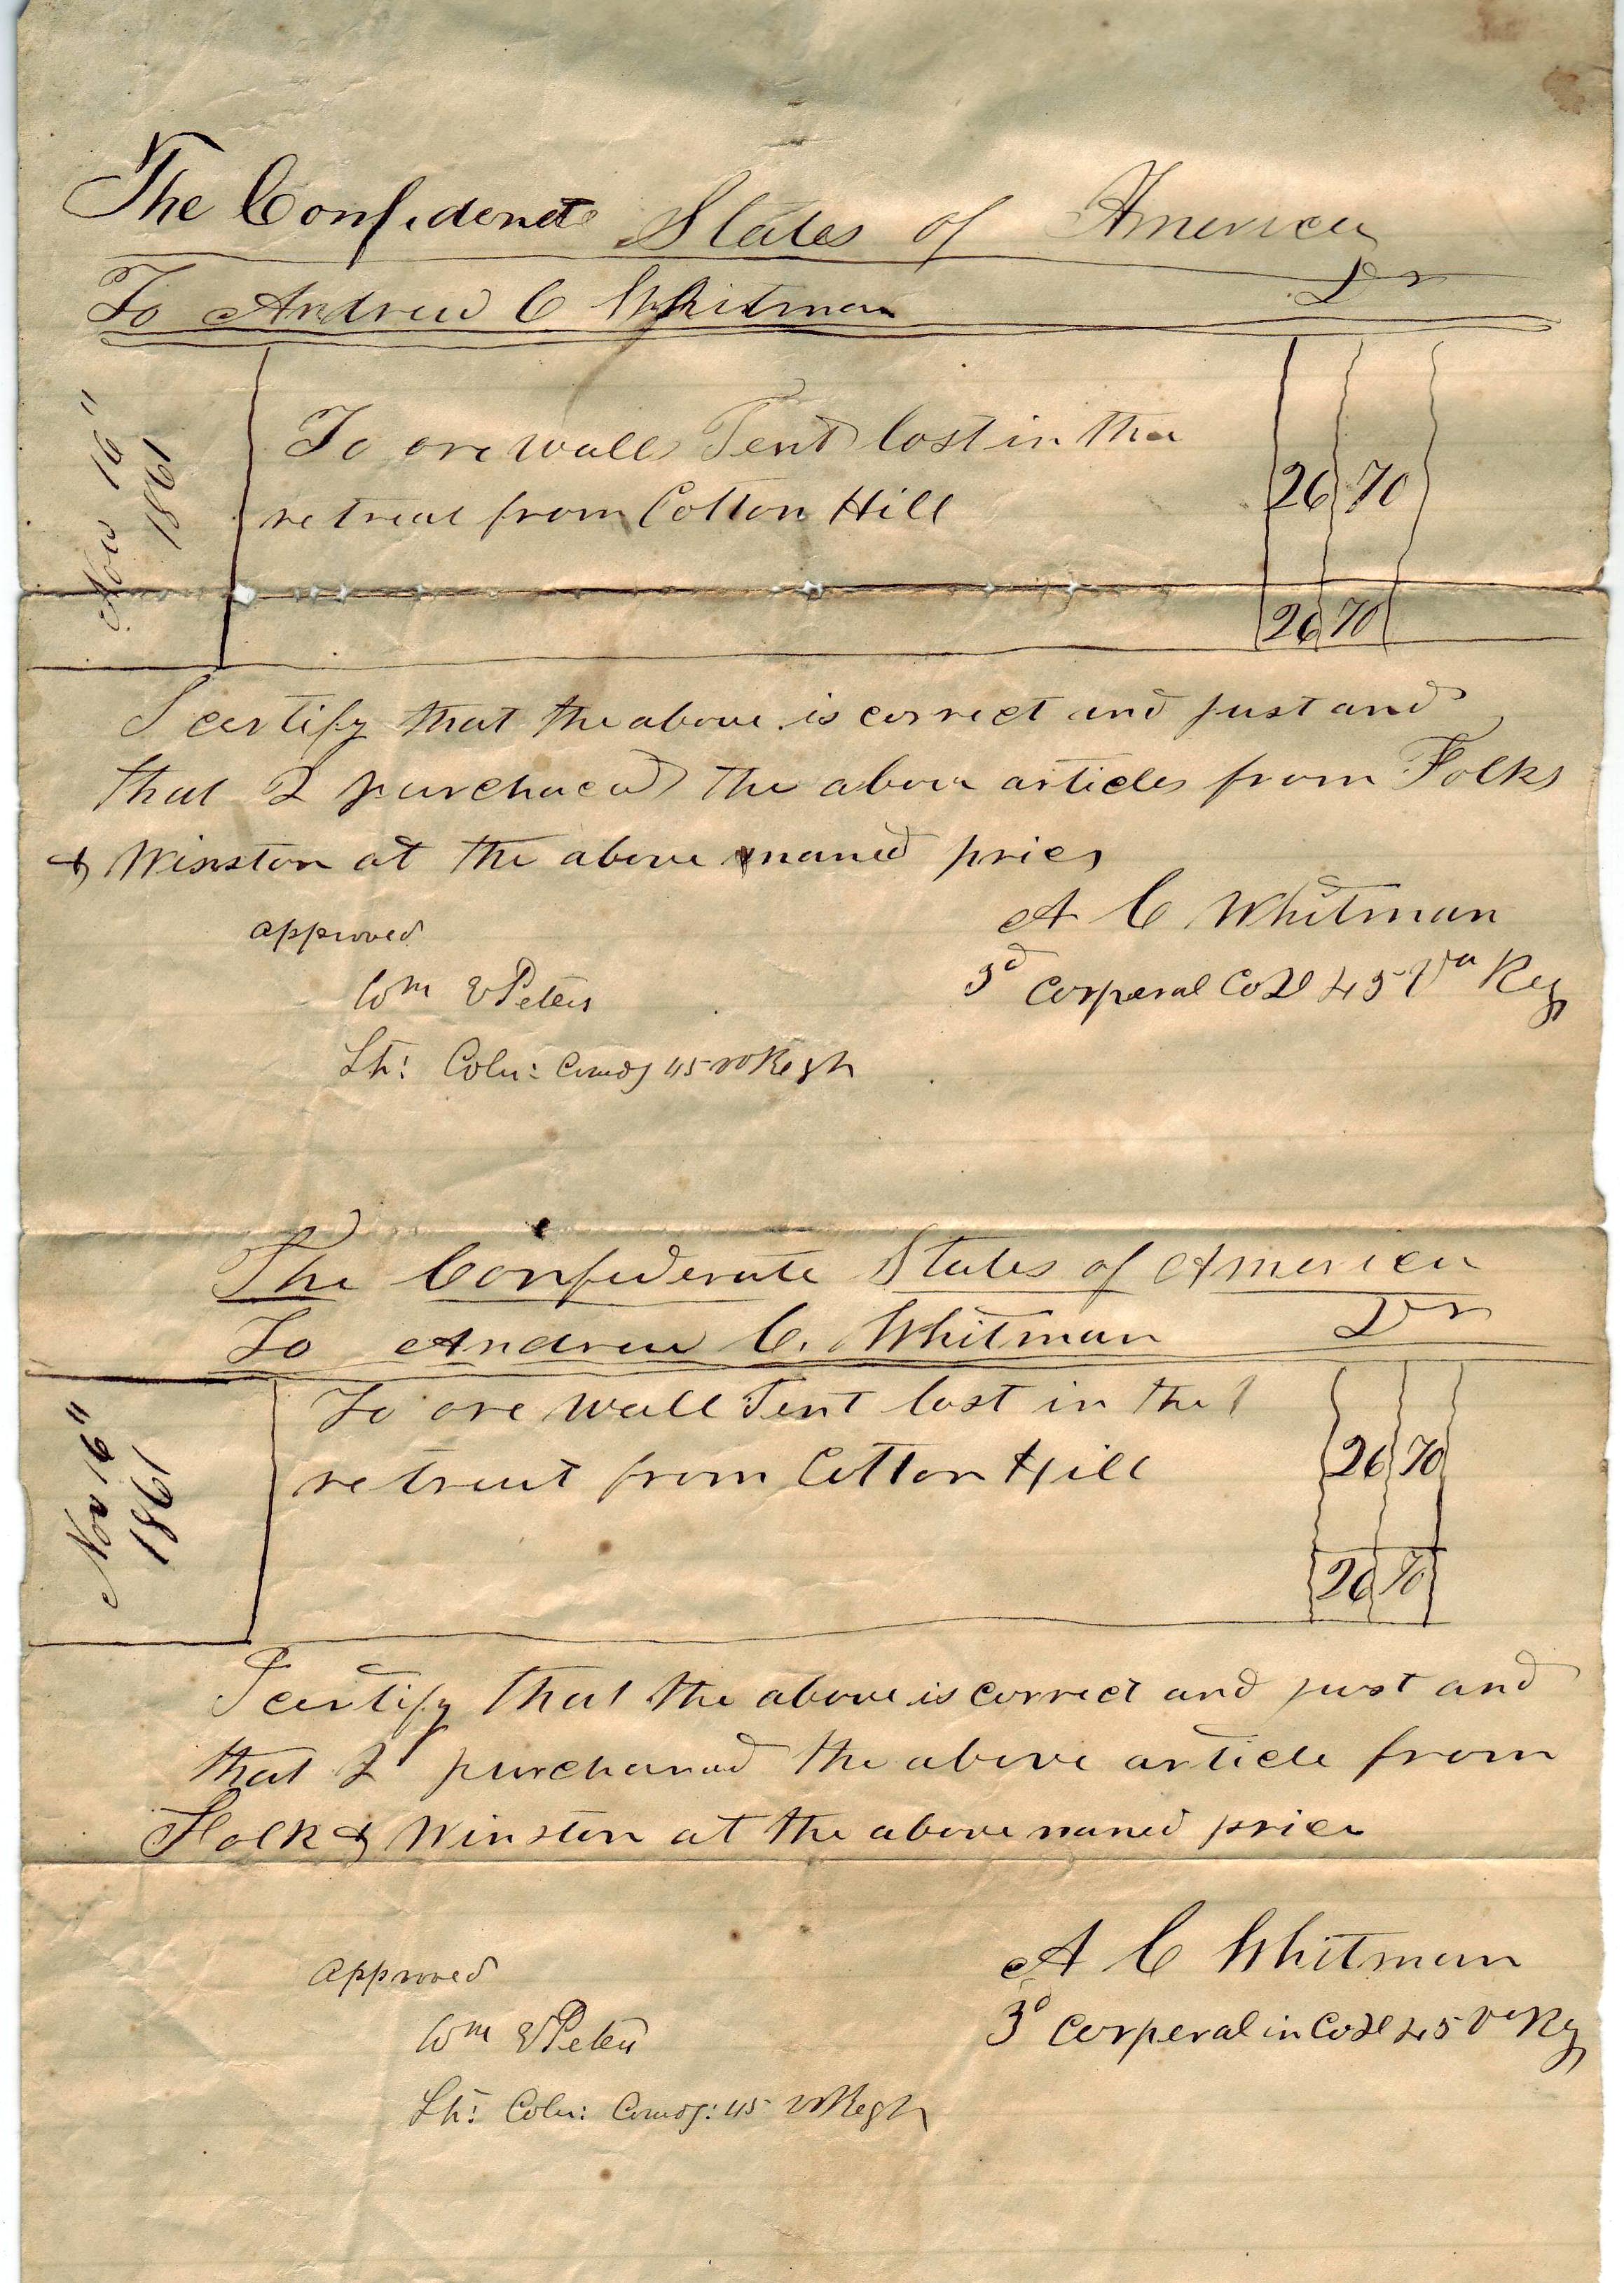 The Confidenete States of America
To Andrew C Whitman Dr
Nov 16"
1861
To one wall Tent lost in the
retreat from Cotton Hill
26 70
26 70
I certify that the above is correct and just and
that I purchaced the above articles from Folks
& Winston at the above named price
A C Whitman
3d Corperal Co 45 Va Reg
approved
Wm E Peters
Lt: Coln: Comdg 45 Va Regt
The Confederate States of America
To Andrew C. Whitman Dr
Nov 16"
1861
To one wall Tent lost in the
retreat from Cotton Hill
26 70
26 70
I certify that the above is correct and just and
that I purchased the above article from
Folk & Winston at the above named price
A C Whitman
3d Corperal in Co 45 Va Rg
Approved
Wm E Peters
Lt: Coln: Comdg: 45 Va Regt